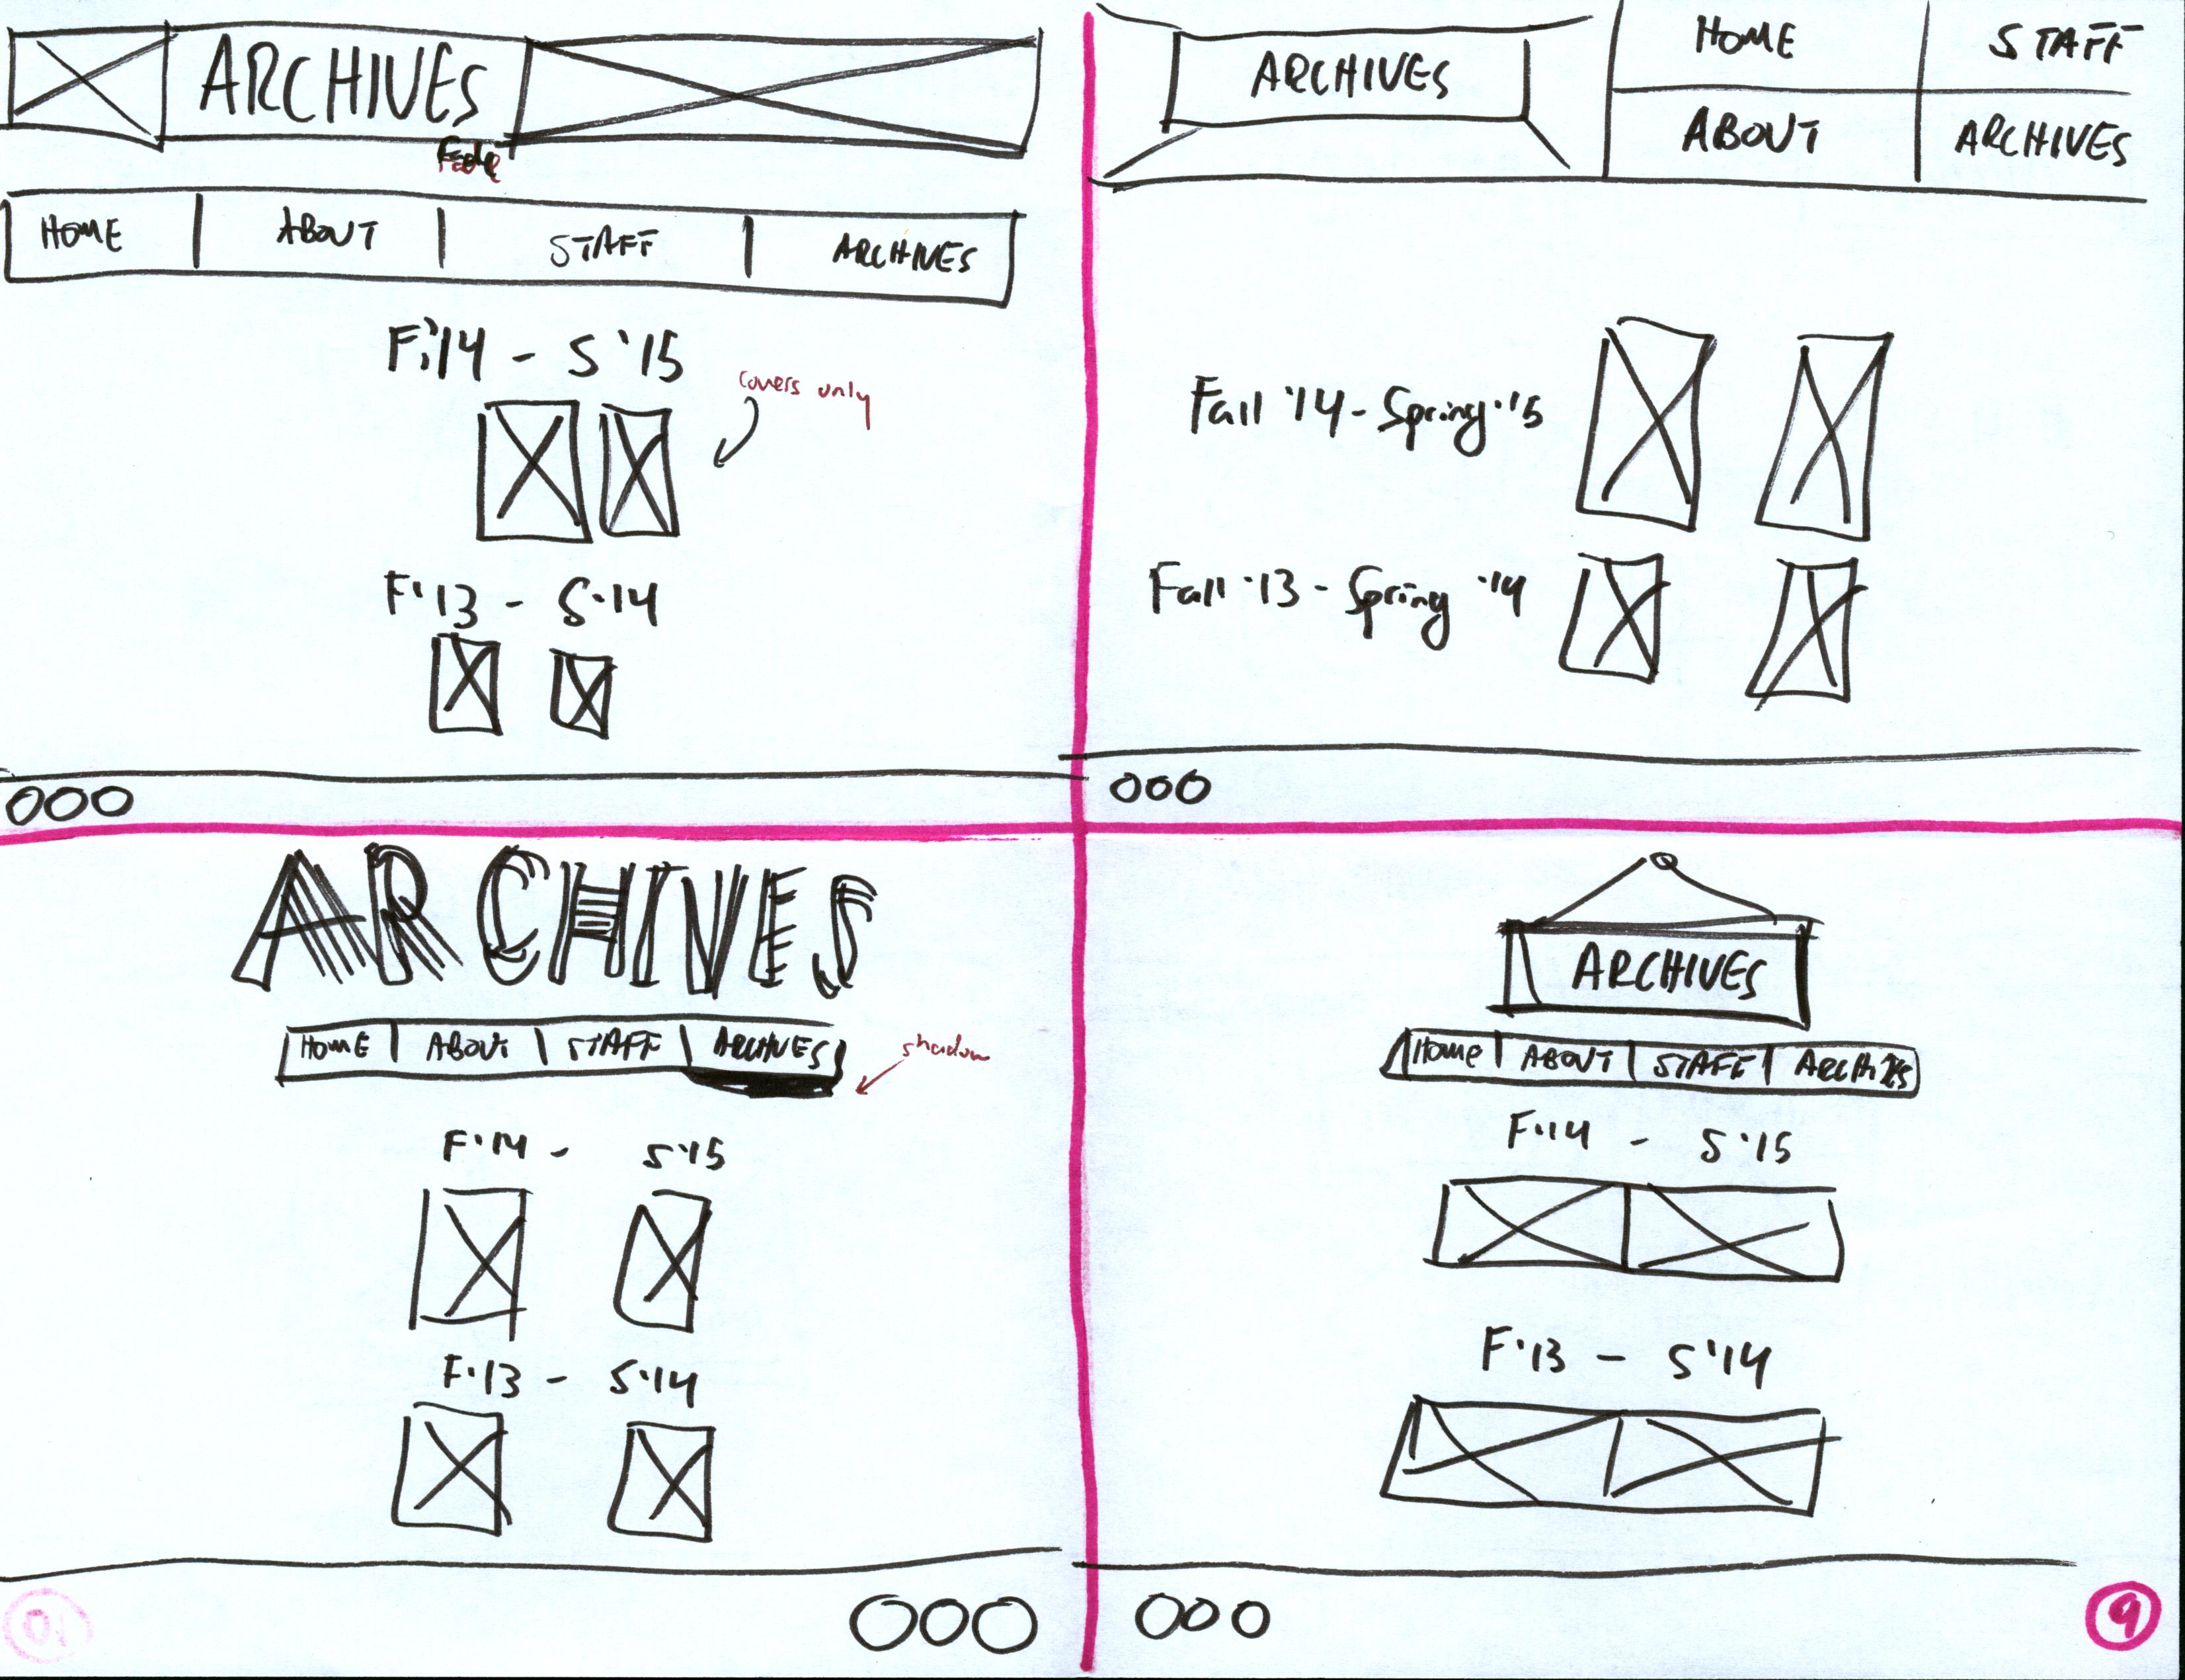 ARCHIVES
Fade
HOME ABOUT STAFF ARCHIVES
F'14 - S '15
covers only
F'13 - S'14
ARCHIVES
HOME STAFF
ABOUT ARCHIVES
Fall '14 - Spring '15
Fall '13 - Spring '14
ARCHIVES
HOME ABOUT STAFF ARCHIVES
shadow
F'14 - S'15
F'13 - S'14
ARCHIVES
HOME ABOUT STAFF ARCHIVES
F'14 - S'15
F'13 - S'14
9